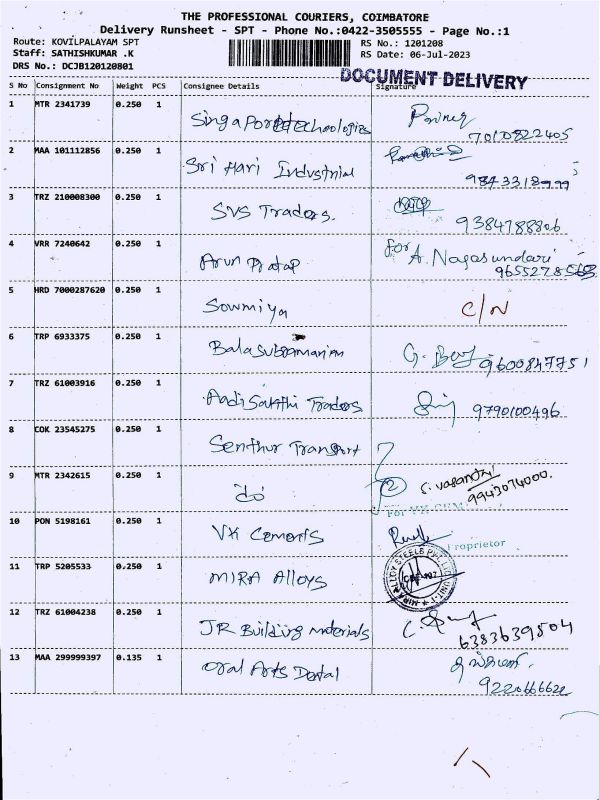 THE PROFESSIONAL COURIERS, COIMBATORE
Delivery Runsheet - SPT - Phone No.:0422-3505555 - Page No.:1
Route: KOVILPALAYAM SPT RS No.: 1201208
Staff: SATHISHKUMAR .K RS Date: 06-Jul-2023
DRS No.: DCJB120120801 DOCUMENT DELIVERY
S No Consignment No Weight PCS Consignee Details Signature
1 MTR 2341739 0.250 1 Singapore technologies
7010822405
2 MAA 101112856 0.250 1 Sri Hari Industrial
9843318999
3 TRZ 210008300 0.250 1 SVS Traders.
9384788806
4 VRR 7240642 0.250 1 Arun Pratap for A. Nagasundari
5 HRD 7000287620 0.250 1 Sowmiya C/N
6 TRP 6933375 0.250 1 Balasubramaniam G. 9600847751
7 TRZ 61003916 0.250 1 Aadi Sakthi Traders 9790100496
8 COK 23545275 0.250 1 Senthur Transport
9 MTR 2342615 0.250 1 do 2 S. Vasanthi
9943074000.
10 PON 5198161 0.250 1 VK Cements
Proprietor
11 TRP 5205533 0.250 1 MIRA Alloys MIRA ALLOY STEELS PVT. LTD. UNIT-I
12 TRZ 61004238 0.250 1 JR Building materials
6383639504
13 MAA 299999397 0.135 1 Oral Arts Dental
9220666622